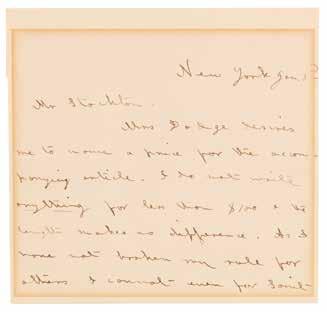 New York Jan 1
Mr Stockton.
Mrs Dodge desires
me to name a price for the accom-
panying article. I do not write
anything for less than $100 & the
length makes no difference. As I
have not broken my rule for
others I cannot even for Saint